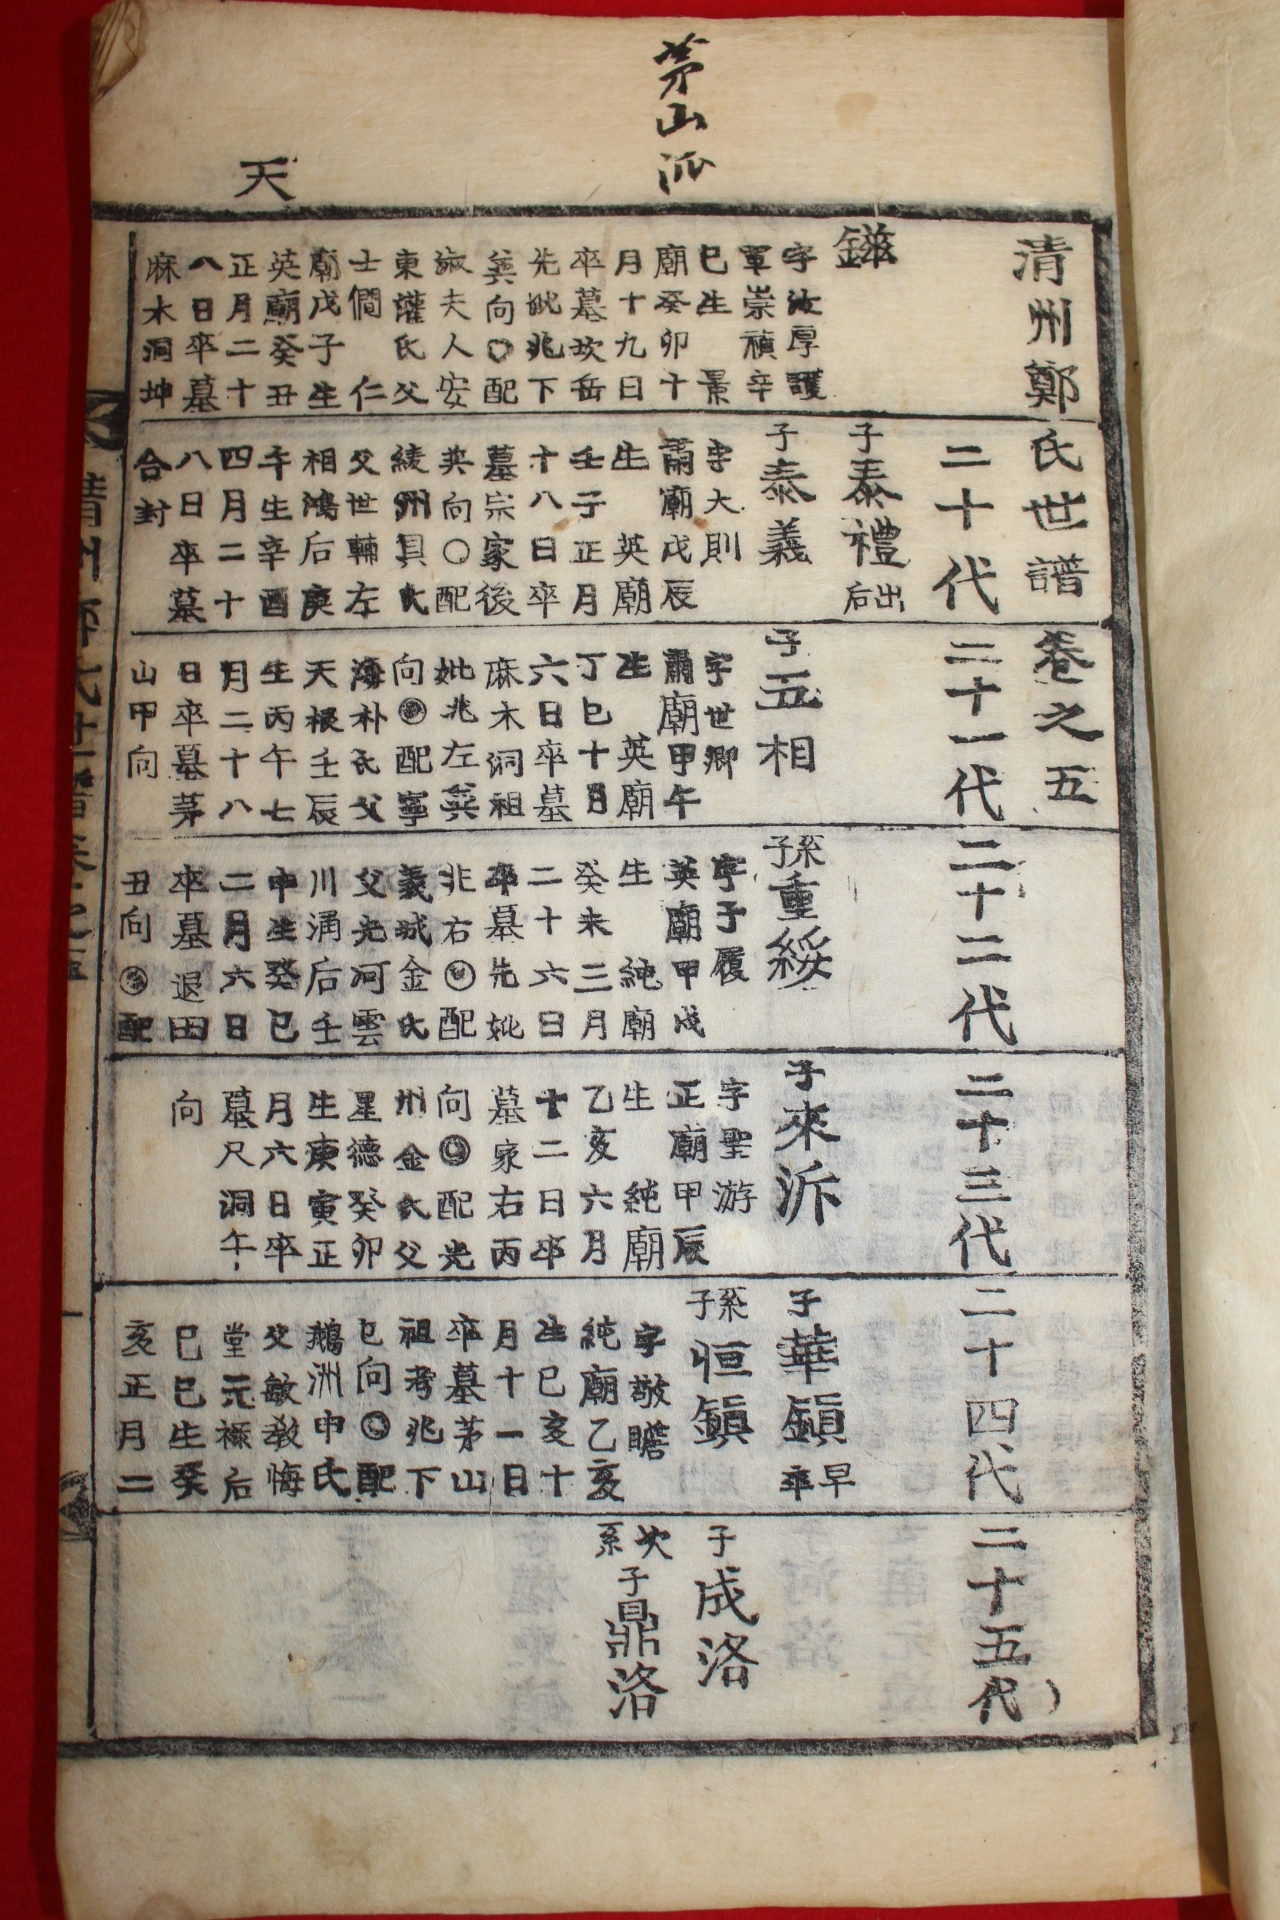 茅山派
天
清州鄭氏世譜卷之五
鎡
字汝厚護
軍崇禎辛
巳生 景
廟癸卯十
月十九日
卒墓坎岳
先妣兆下
巽向〇配
淑夫人安
東權氏父
士僩 仁
廟戊子生
英廟癸丑
正月二十
八日卒墓
麻木洞坤
二十代
子泰禮出后
子泰義
字大則
肅廟戊辰
生 英廟
壬子正月
十八日卒
墓宗家後
巽向〇配
綾州具氏
父世輔左
相鴻后庚
午生辛酉
四月二十
八日卒墓
合封
二十一代
子五相
字世卿
肅廟甲午
生 英廟
丁巳十月
六日卒墓
麻木洞祖
妣兆左巽
向〇配寧
海朴氏父
天根壬辰
生丙午七
月二十八
日卒墓茅
山甲向
二十二代
系子重綏
字子履
英廟甲戌
生 純廟
癸未三月
二十六日
卒墓先妣
兆右〇配
義城金氏
父光河雲
川涌后壬
申生癸巳
二月六日
卒墓退田
丑向〇配
二十三代
子來泝
字聖游
正廟甲辰
生 純廟
乙亥六月
十二日卒
墓泉右丙
向〇配光
州金氏父
星德癸卯
生庚寅正
月六日卒
墓尺洞午
向
二十四代
子華鎭早卒
系子恒鎭
字敬瞻
純廟乙亥
生己亥十
月十一日
卒墓茅山
祖考兆下
巳向〇配
鵝洲申氏
父敏敎悔
堂元祿后
己巳生癸
亥正月二
二十五代
子成洛
次系子鼎洛